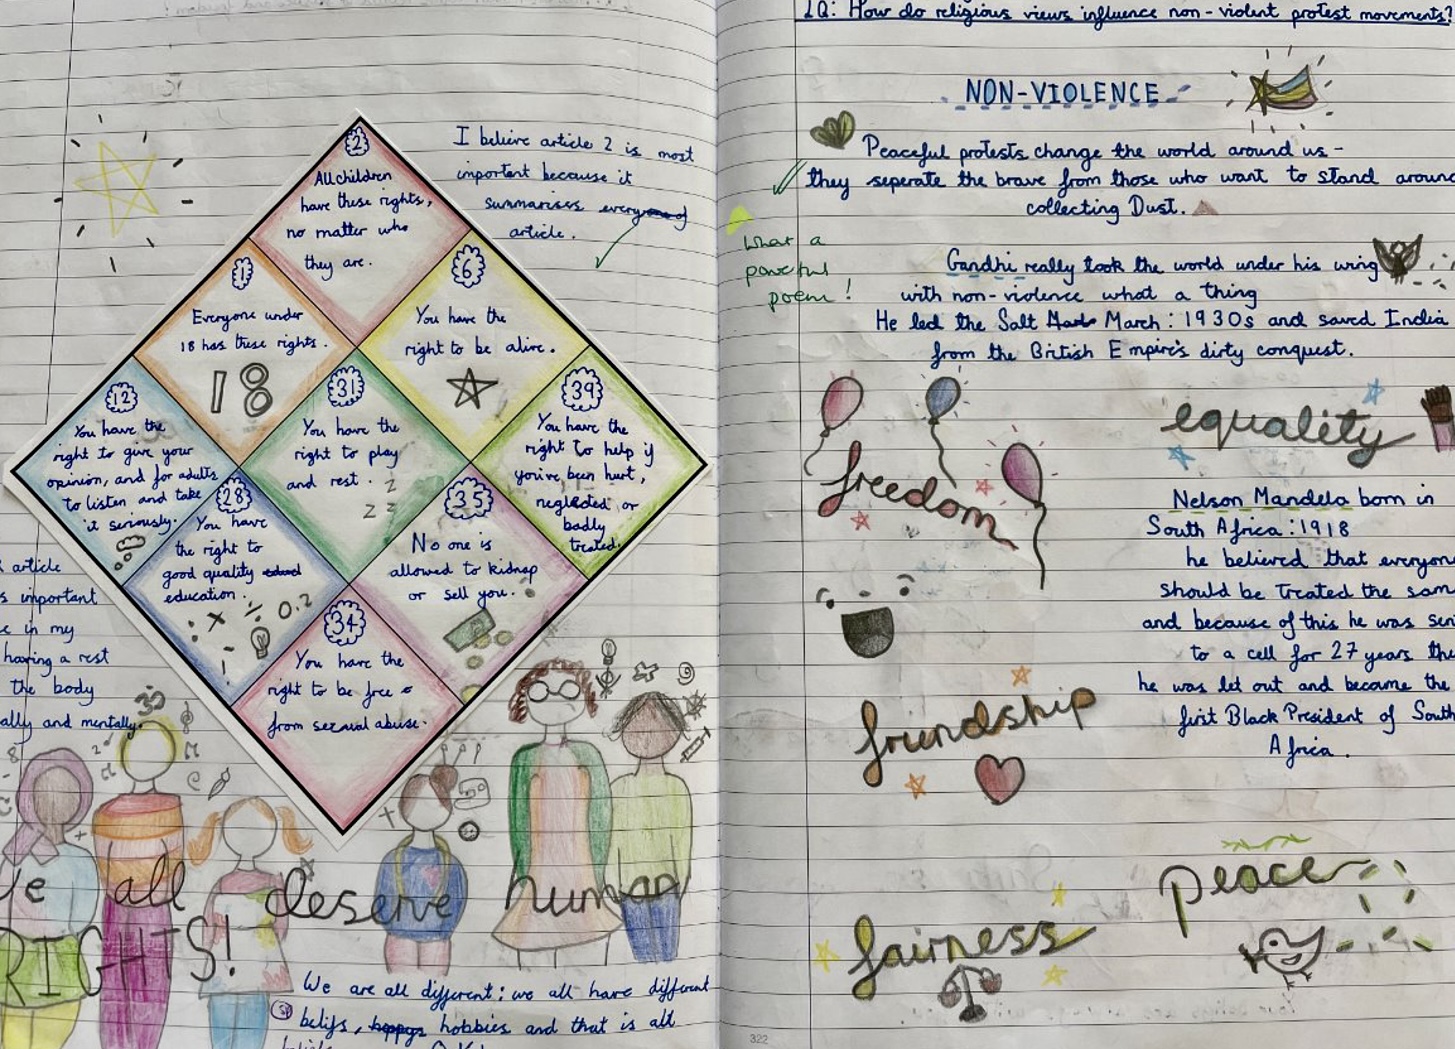 I believe article 2 is most
important because it
summarises every
article.
2
All children
have these rights,
no matter who
they are.
1
Everyone under
18 has these rights.
18
6
You have the
right to be alive.
12
You have the
right to give your
opinion, and for adults
to listen and take
it seriously.
31
You have the
right to play
and rest.
z
z z
39
You have the
right to help if
you've been hurt,
neglected or
badly
treated.
28
You have
the right to
good quality
education.
. x ÷ 0.2
35
No one is
allowed to kidnap
or sell you.
34
You have the
right to be free
from sexual abuse.
article
important
in my
having a rest
the body
ally and mentally.
all deserve human
RIGHTS!
We are all different; we all have different
belifs, hobbies and that is all
LQ: How do religious views influence non-violent protest movements?
NON-VIOLENCE
Peaceful protests change the world around us -
they seperate the brave from those who want to stand around
collecting Dust.
What a
powerful
poem!
Gandhi really took the world under his wing
with non-violence what a thing
He led the Salt March: 1930s and saved India
from the British Empire's dirty conquest.
equality
freedom
Nelson Mandela born in
South Africa: 1918
he believed that everyon
should be treated the sam
and because of this he was sen
to a cell for 27 years the
he was let out and became the
first Black President of South
Africa.
friendship
peace
fairness
322